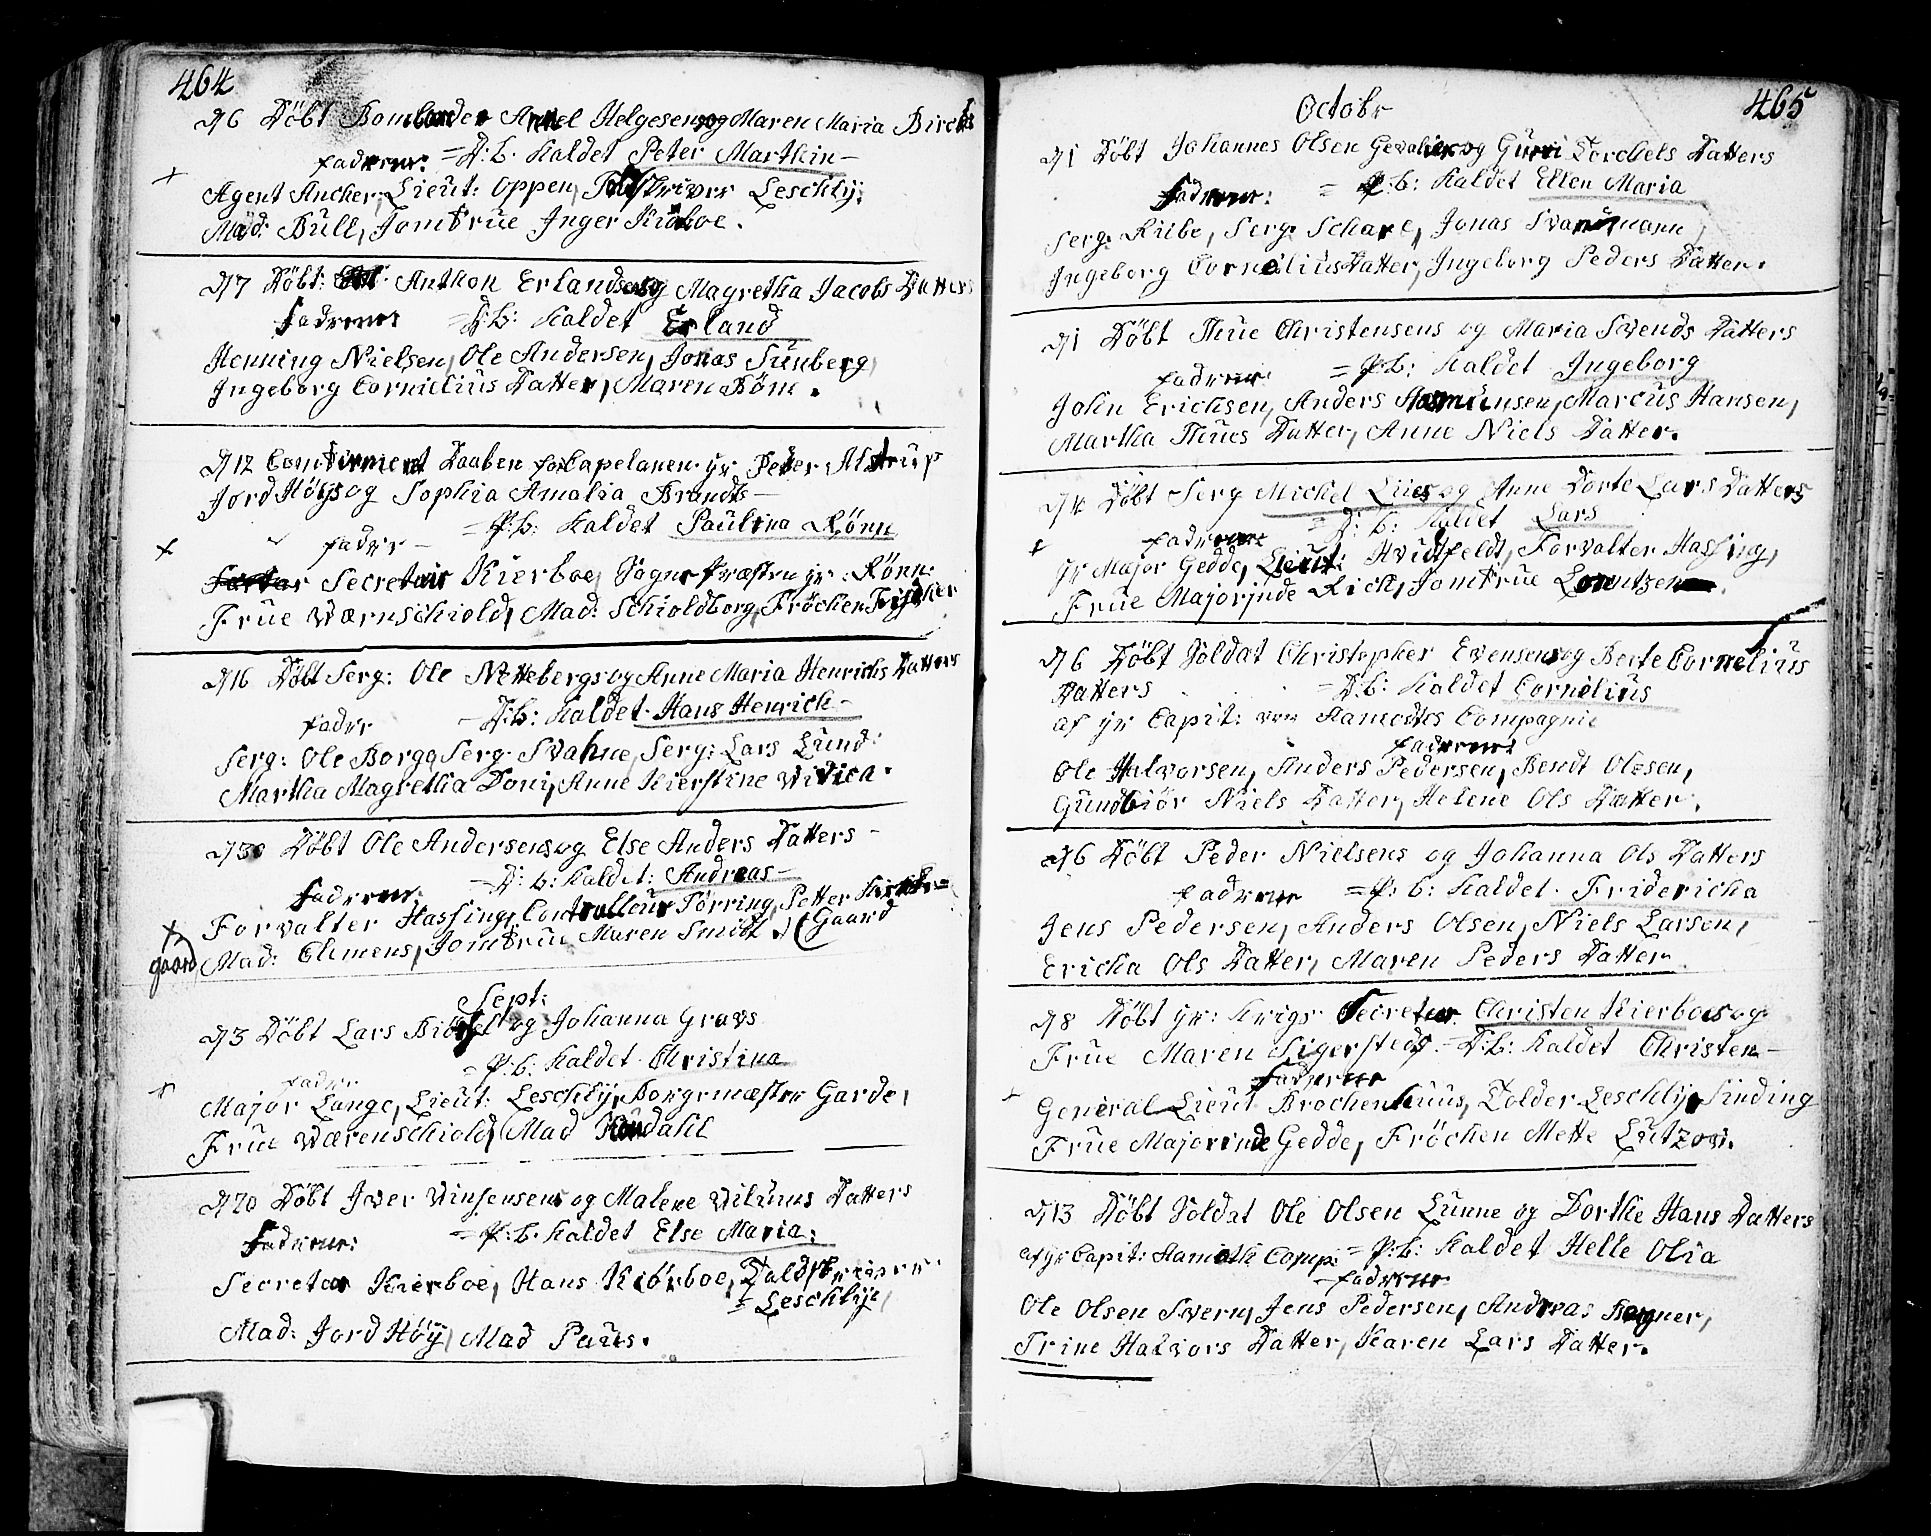 464
D 6 Döbt Bombarder Axel Helgesens og Maren Maria Birchs
fadrene: = D: b: kaldet Peter Marthin –
+
Agent Ancher, Lieut: Oppen, Toldskriver Leschly,
Mad: Bull, Jomfrue Inger Kierboe.
D 7 Döbt: Anthon Erlands og Magretha Jacobs Datters
fadrene = D: b: kaldet Erland
Henning Nielsen, Ole Andersen, Jonas Sunberg,
Ingeborg Cornelius Datter, Maren Röm.
D 12 Confirmert Daaben for Capelanen Hr Peder Alstrup
Jord Höys og Sophia Amalia Brandts –
= P: b: kaldet Paulina Rönn
fadr –
+
Secretair Kierboe, Sogne Præsten Hr: Rönn:
Frue Wærnschiold, Mad: Schioldborg, Fröchen Fischer
D 16 Döbt Serg: Ole Nettebergs og Anne Maria Henrichs Datters
fadr – D: b: kaldet Hans Henrich –
Serg: Ole Borge, Serg. Svahne, Serg: Lars Lund:
Martha Magretha Doni, Anne Kierstine Wivica.
D 30 Döbt Ole Andersens og Else Anders Datters –
fadrene: = D: b: kaldet: Andreas –
+
Forvalter Hassing, Controlleur Törring, Petter
gaard
Mad: Clemens, Jomfrue Maren Smidt. ) ( Gaard
Sept:
D 3 Döbt Lars og Johanna Gravs
= P: b: kaldet Christina
fadr
+
Major Lange, Lieut: Leschly, Borgemæster Garde,
Frue Wærenschiold, Mad
D 20 Döbt Iver Winsensens og Malene Wilums Datters
fadrene: = P: b: kaldet Else Maria:
Secretar Kierboe, Hans Kiörboe, Toldskriver
= Leschly,
Mad: Jord Höy, Mad Paus.
Octobr
465
D 1 Döbt Johannes Olsen og Guri Torchels Datters
fadrene: = P: b: kaldet Ellen Maria
Serg: Riibe, Serg: Schare, Jonas Svanemann,
Ingeborg Cornelius Datter, Ingeborg Peders Datter.
D 1 Döbt Thue Christensens og Maria Svends Datters
fadrene = P: b: kaldet Ingeborg
John Erichsen, Anders Asmunsen, Marcus Hansen,
Martha Thues Datter, Anne Niels Datter.
D 4 Döbt Serg Michel Lies og Anne Dorte Lars Datters
fadrene = D: b: kaldet Lars
+
Hr Major Gedde, Lieut: Hvidtfeldt, Forvalter Hassing,
Frue Majorinde Rick, Jomfrue Lorentzen.
D 6 Döbt Soldat Christopher Evensens og Berte Cornelius
Datters = D: b: kaldet Cornelius
af Hr Capit: von Hamoths Compagnie
fadrene:
Ole Halvorsen, Anders Pedersen, Bendt Olesen,
Gundbiör Niels Datter, Helene Ols Datter.
D 6 Döbt Peder Nielsens og Johanna Ols Datters
fadrene = P: b: kaldet Fridericha
Jens Pedersen, Anders Olsen, Niels Larsen,
Ericha Ols Datter, Maren Peders Datter
D 8 Döbt Hr: Krigs Secreter Christen Kierboes og
Frue Maren Sigersteds. – D: b: kaldet Christen –
fadrene
+
General Lieut Brochenhuus, Tolder Leschly, Sinding
Frue Majorinde Gedde, Fröchen Mette Lützow.
D 13 Döbt Soldat Ole Olsen Lunne og Dorthe Hans Datters
af Hr Capit: Hamoth Comp: = P: b: kaldet Helle Olia
– fadrene
Ole Olsen Svern, Jens Pedersen, Andreas Bogner,
Trine Halvors Datter, Karen Lars Datter.